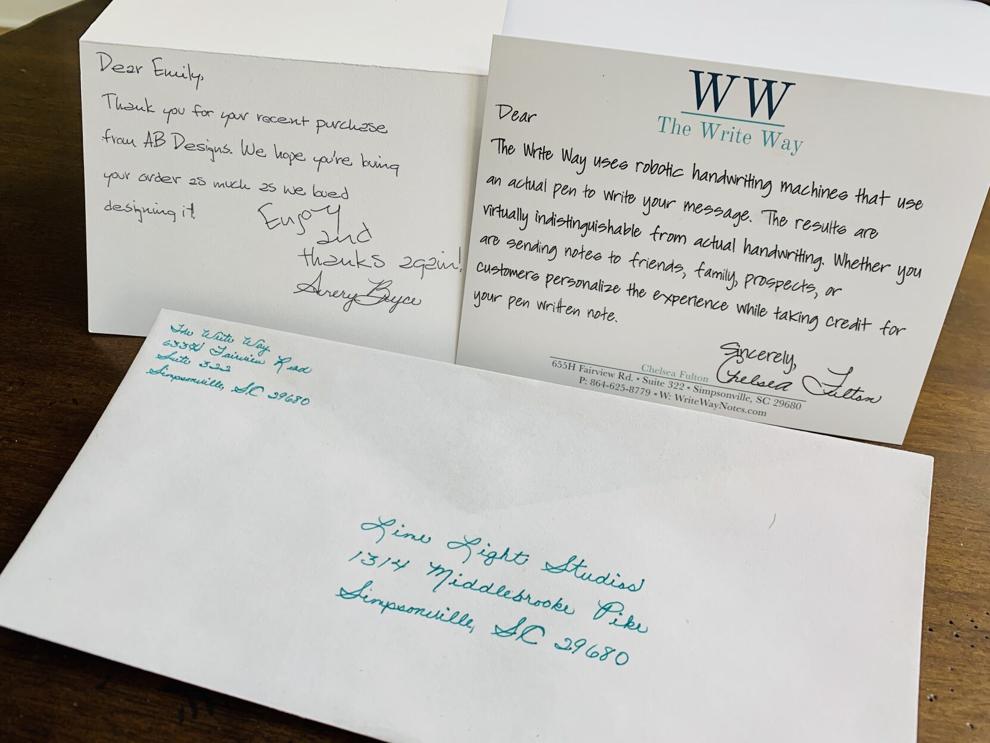 Dear Emily,
Thank you for your recent purchase
from AB Designs. We hope you're loving
your order as much as we loved
designing it!
Enjoy
and
thanks again!
Avery Bryce
WW
The Write Way
Dear
The Write Way uses robotic handwriting machines that use
an actual pen to write your message. The results are
virtually indistinguishable from actual handwriting. Whether you
are sending notes to friends, family, prospects, or
customers personalize the experience while taking credit for
your pen written note.
Sincerely,
Chelsea Fulton
Chelsea Fulton
655H Fairview Rd. • Suite 322 • Simpsonville, SC 29680
P: 864-625-8779 • W: WriteWayNotes.com
The Write Way
Fairview Road
Suite 322
Simpsonville, SC 29680
Line Light Studios
1314 Middlebrooke Pike
Simpsonville, SC 29680